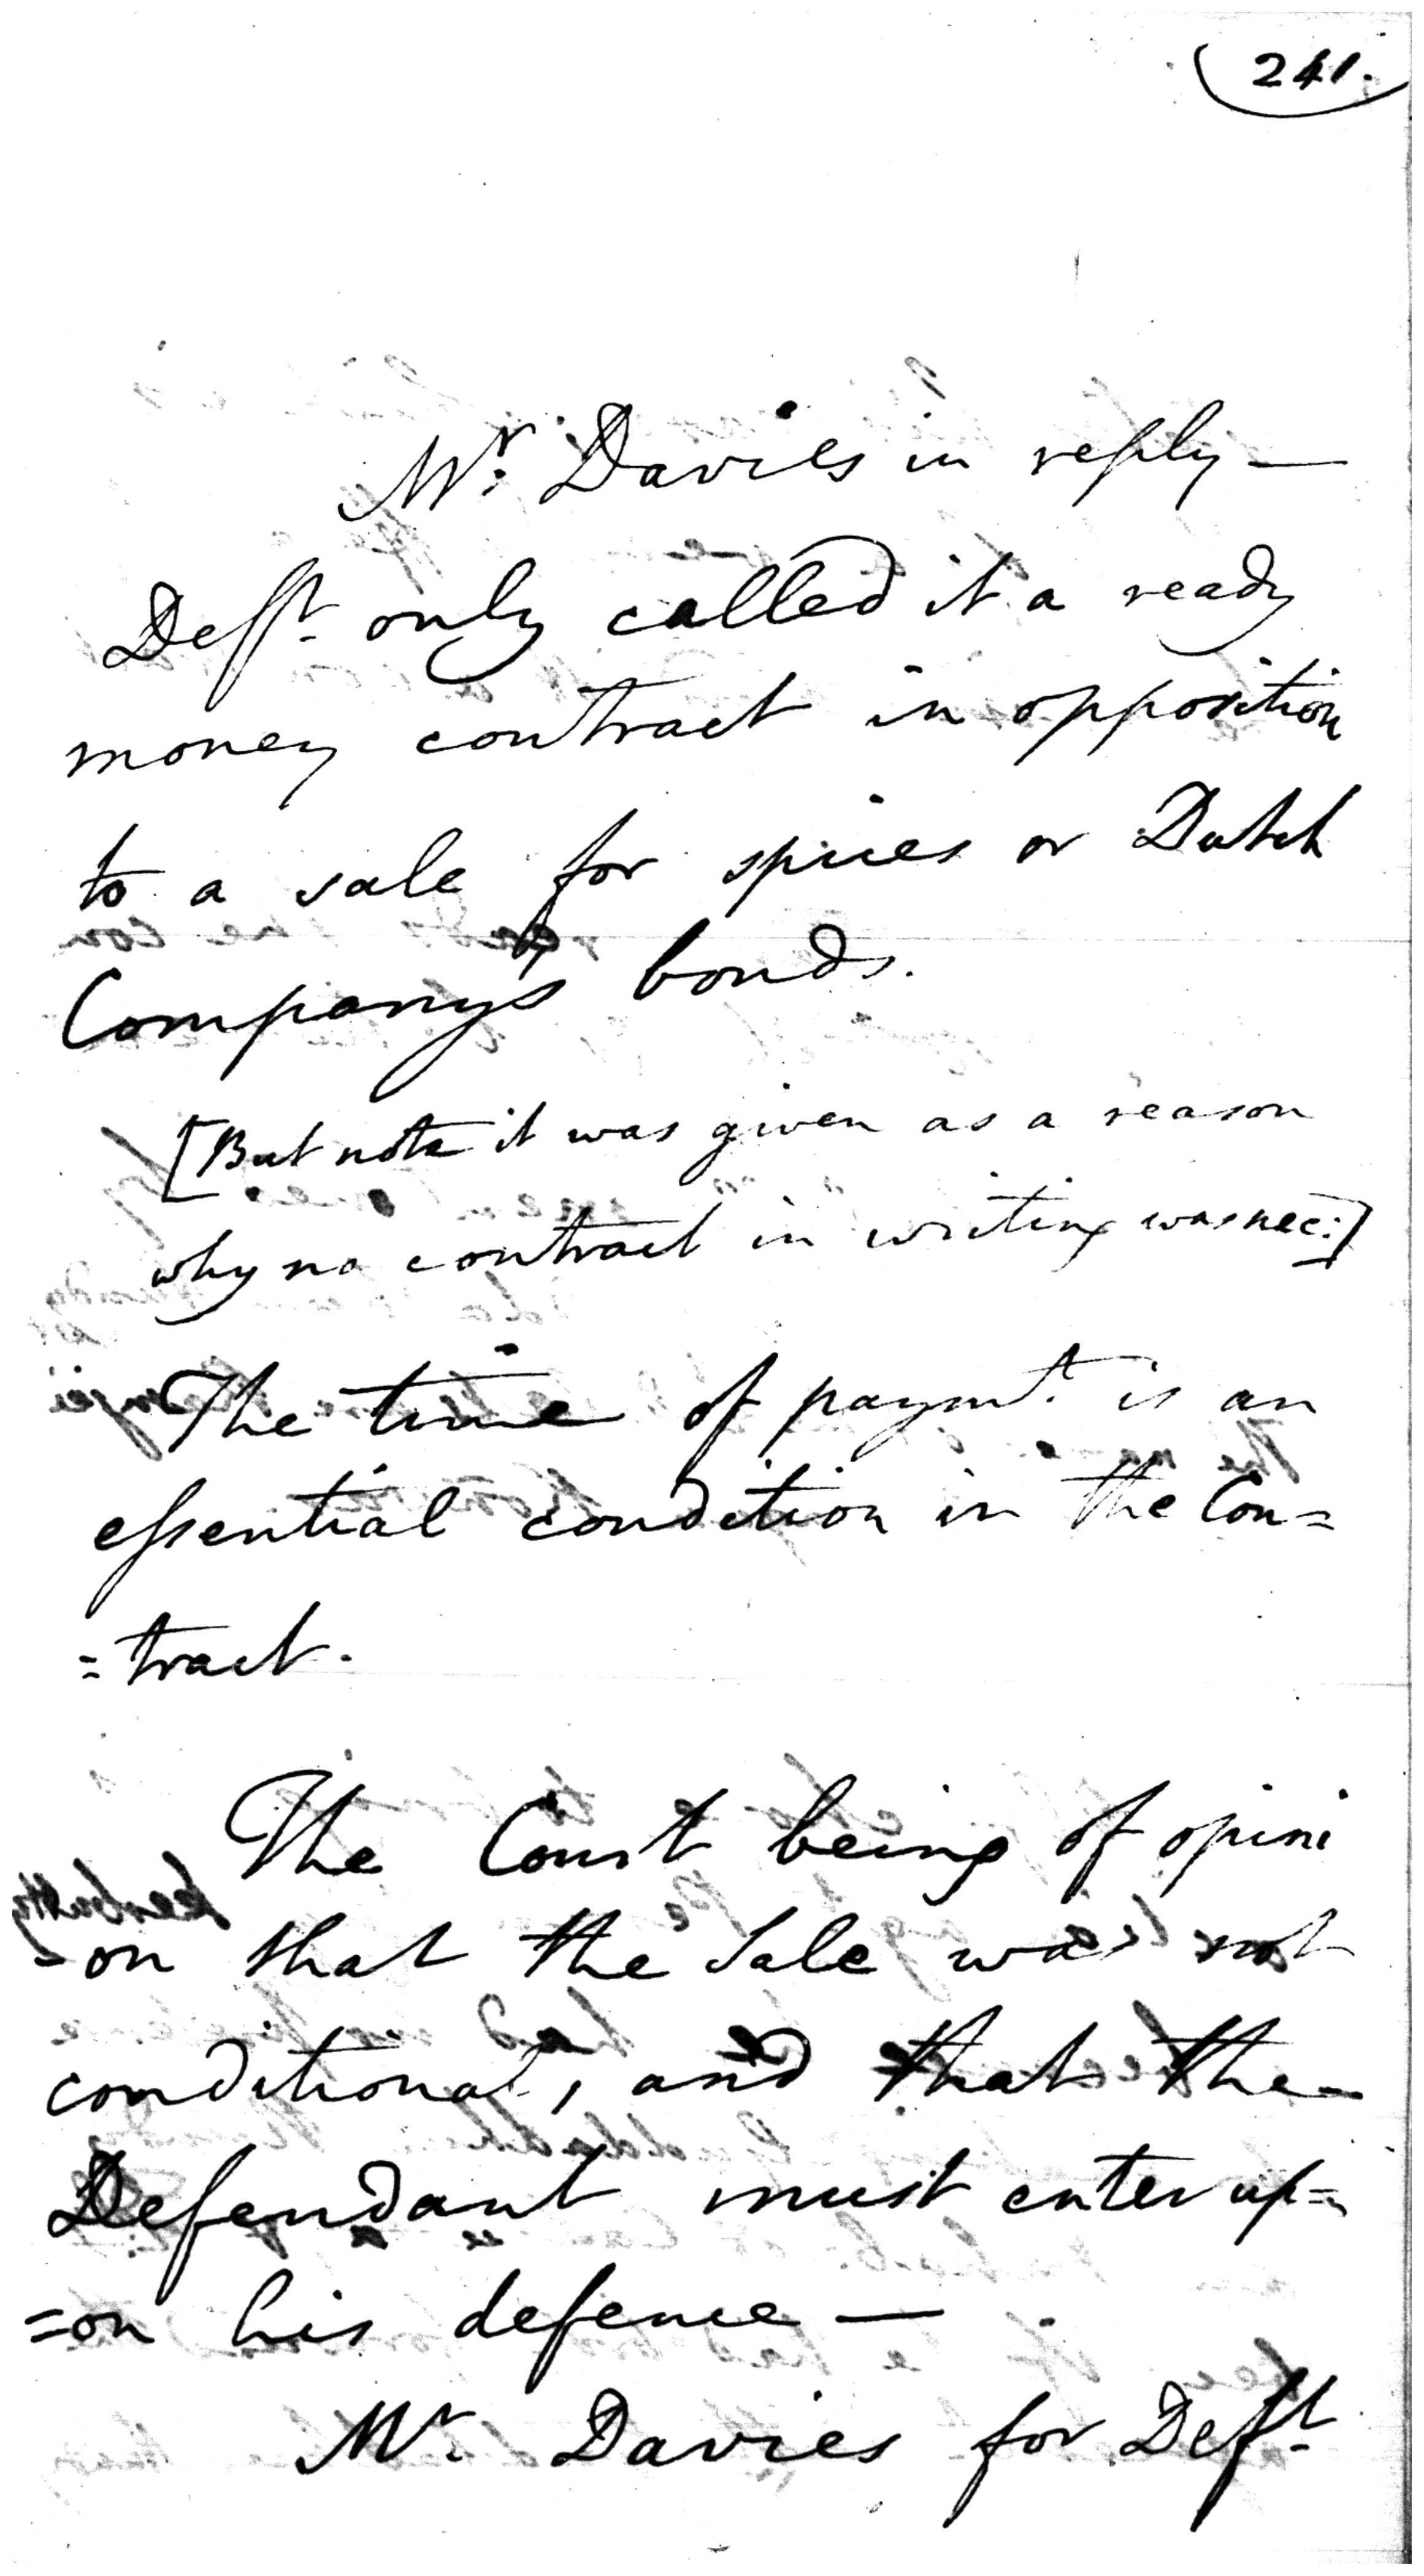 241.
Mr. Davies in reply —
Defft. only called it a ready
money contract in opposition
to a sale for spices or Dutch
Company's bonds.
[But note it was given as a reason
why no contract in writing was nec:]
The time of paymt. is an
essential condition in the Con=
=tract.
The Court being of opini
-on that the Sale was not
conditional, and that the
Defendant must enter up=
=on his defence —
Mr. Davies for Defft.